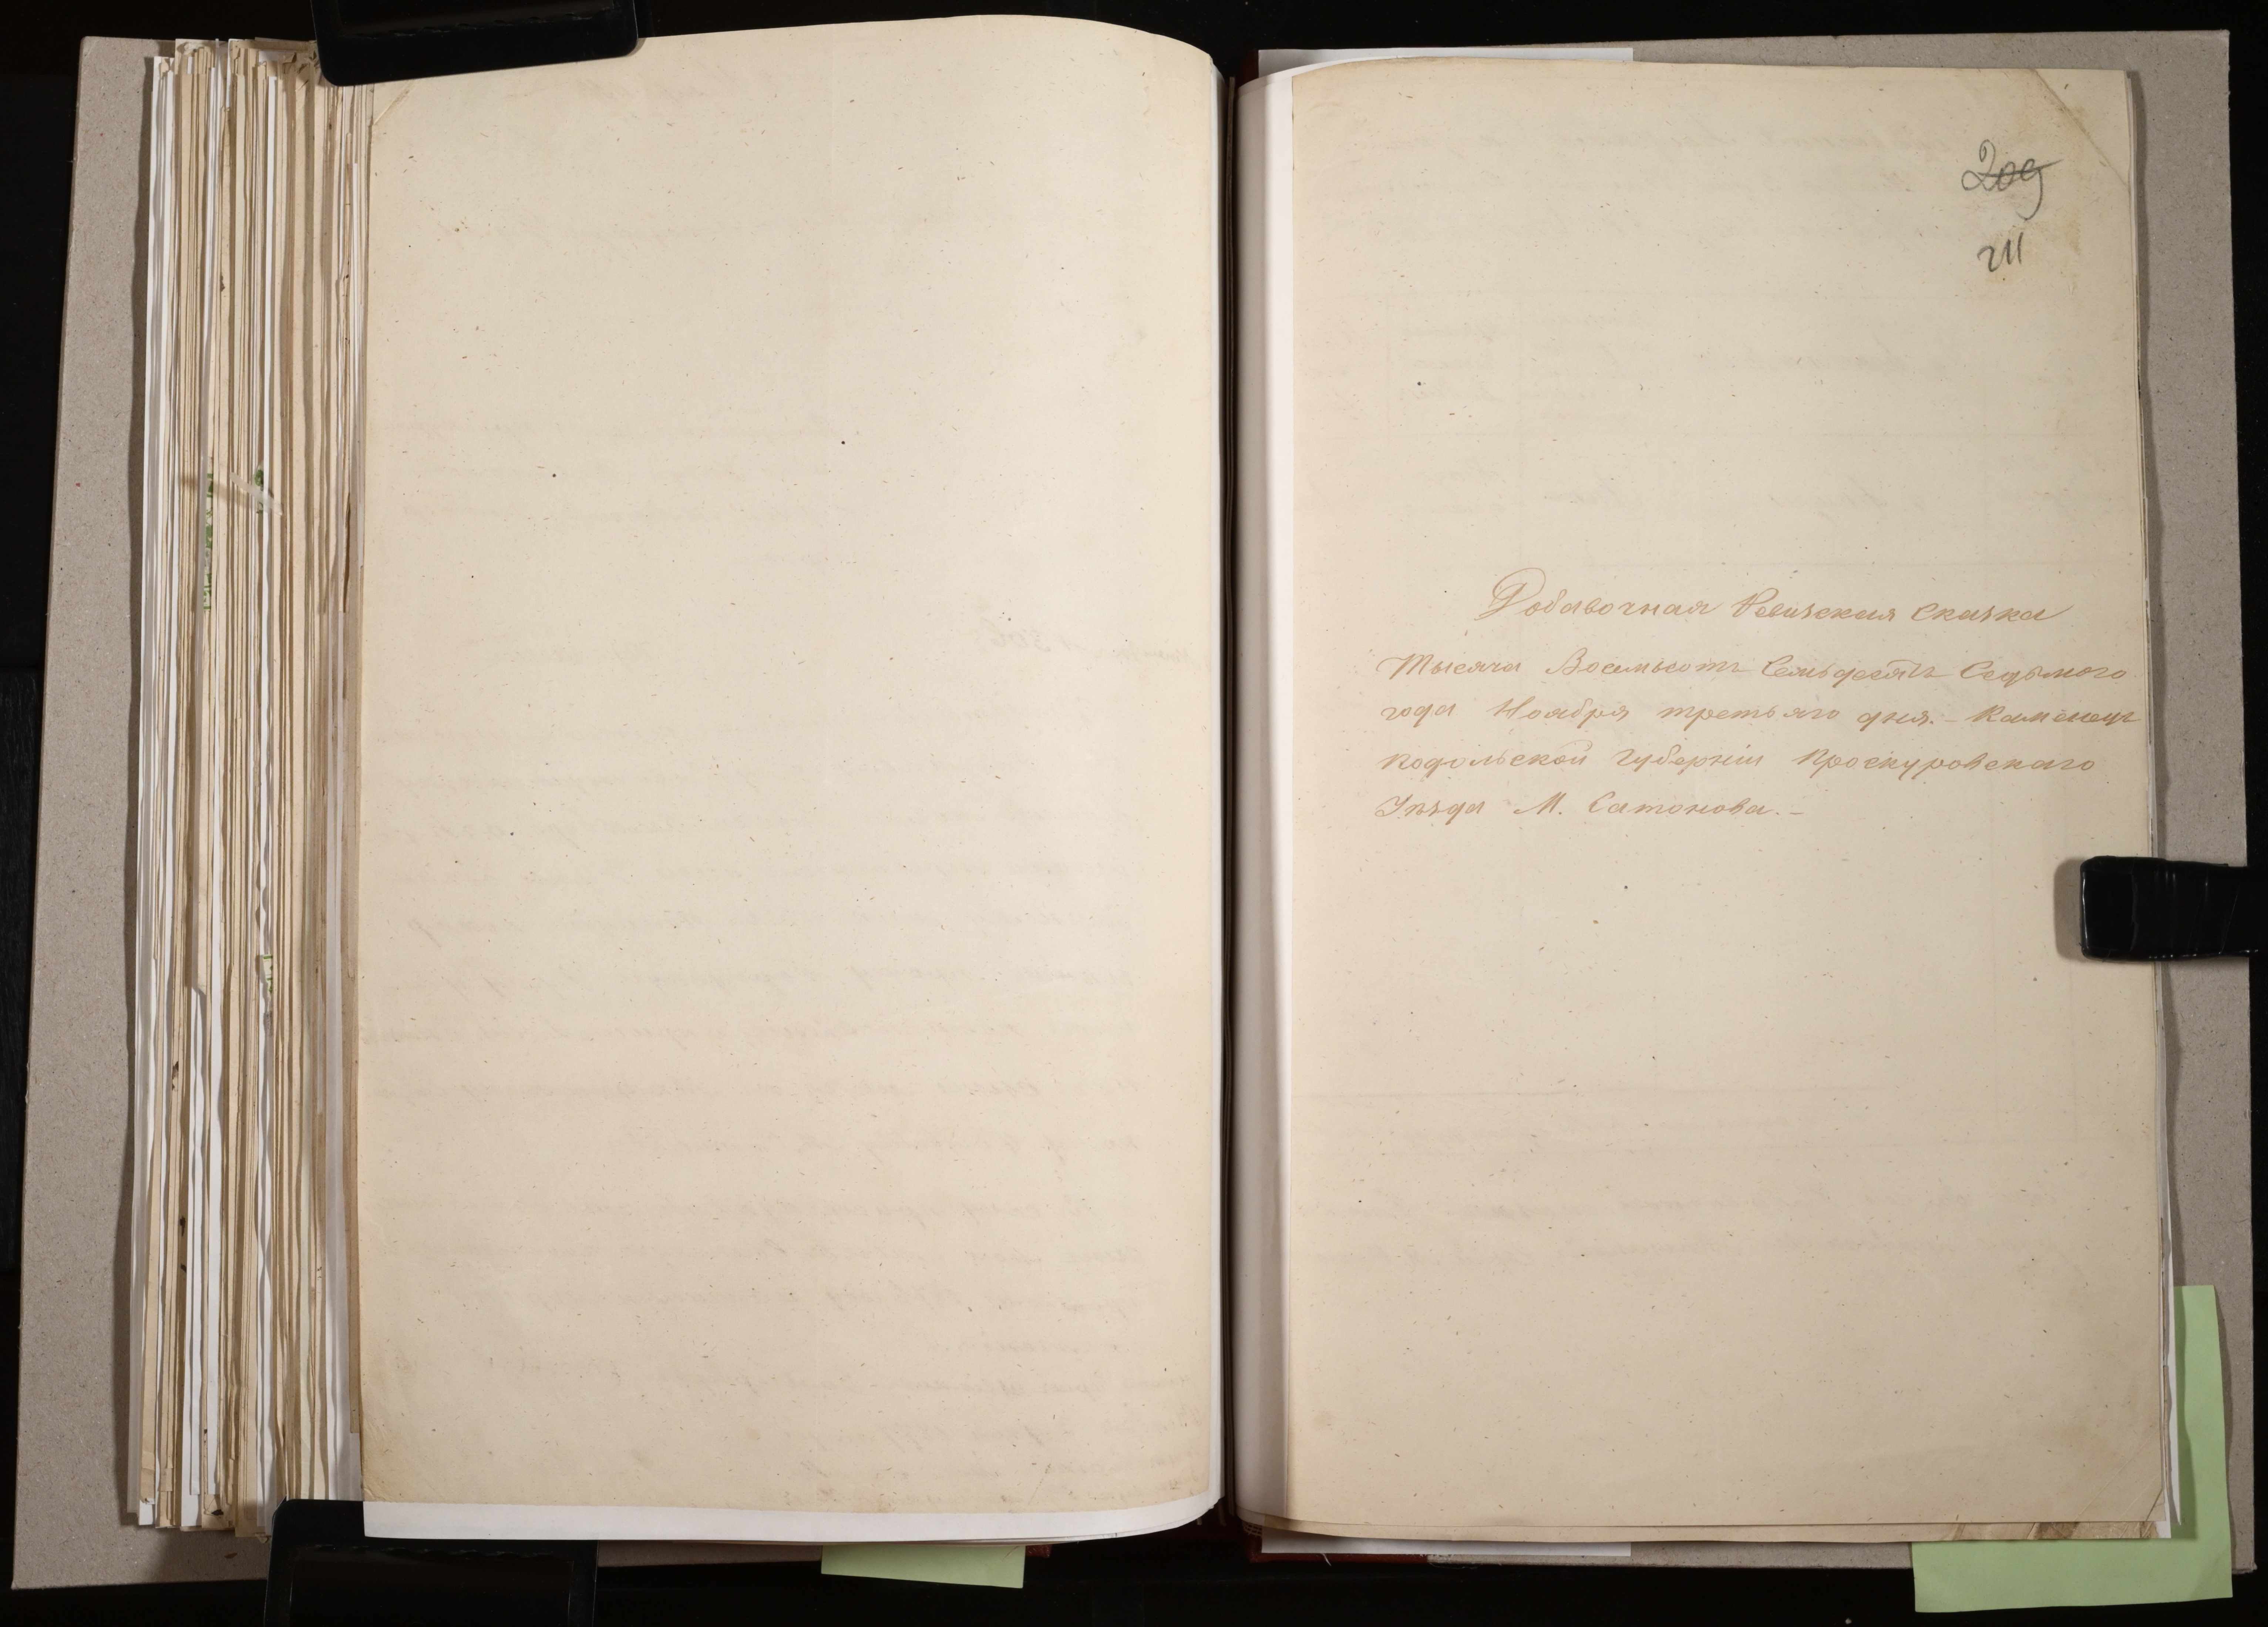 209
211
Добавочная Ревизская Сказка
Тысяча Восемьсотъ Семьдесятъ Седьмого
года Ноября третьяго дня. – Каменец
подольской Губерніи Проскуровскаго
Уѣзда М. Сатонова. –